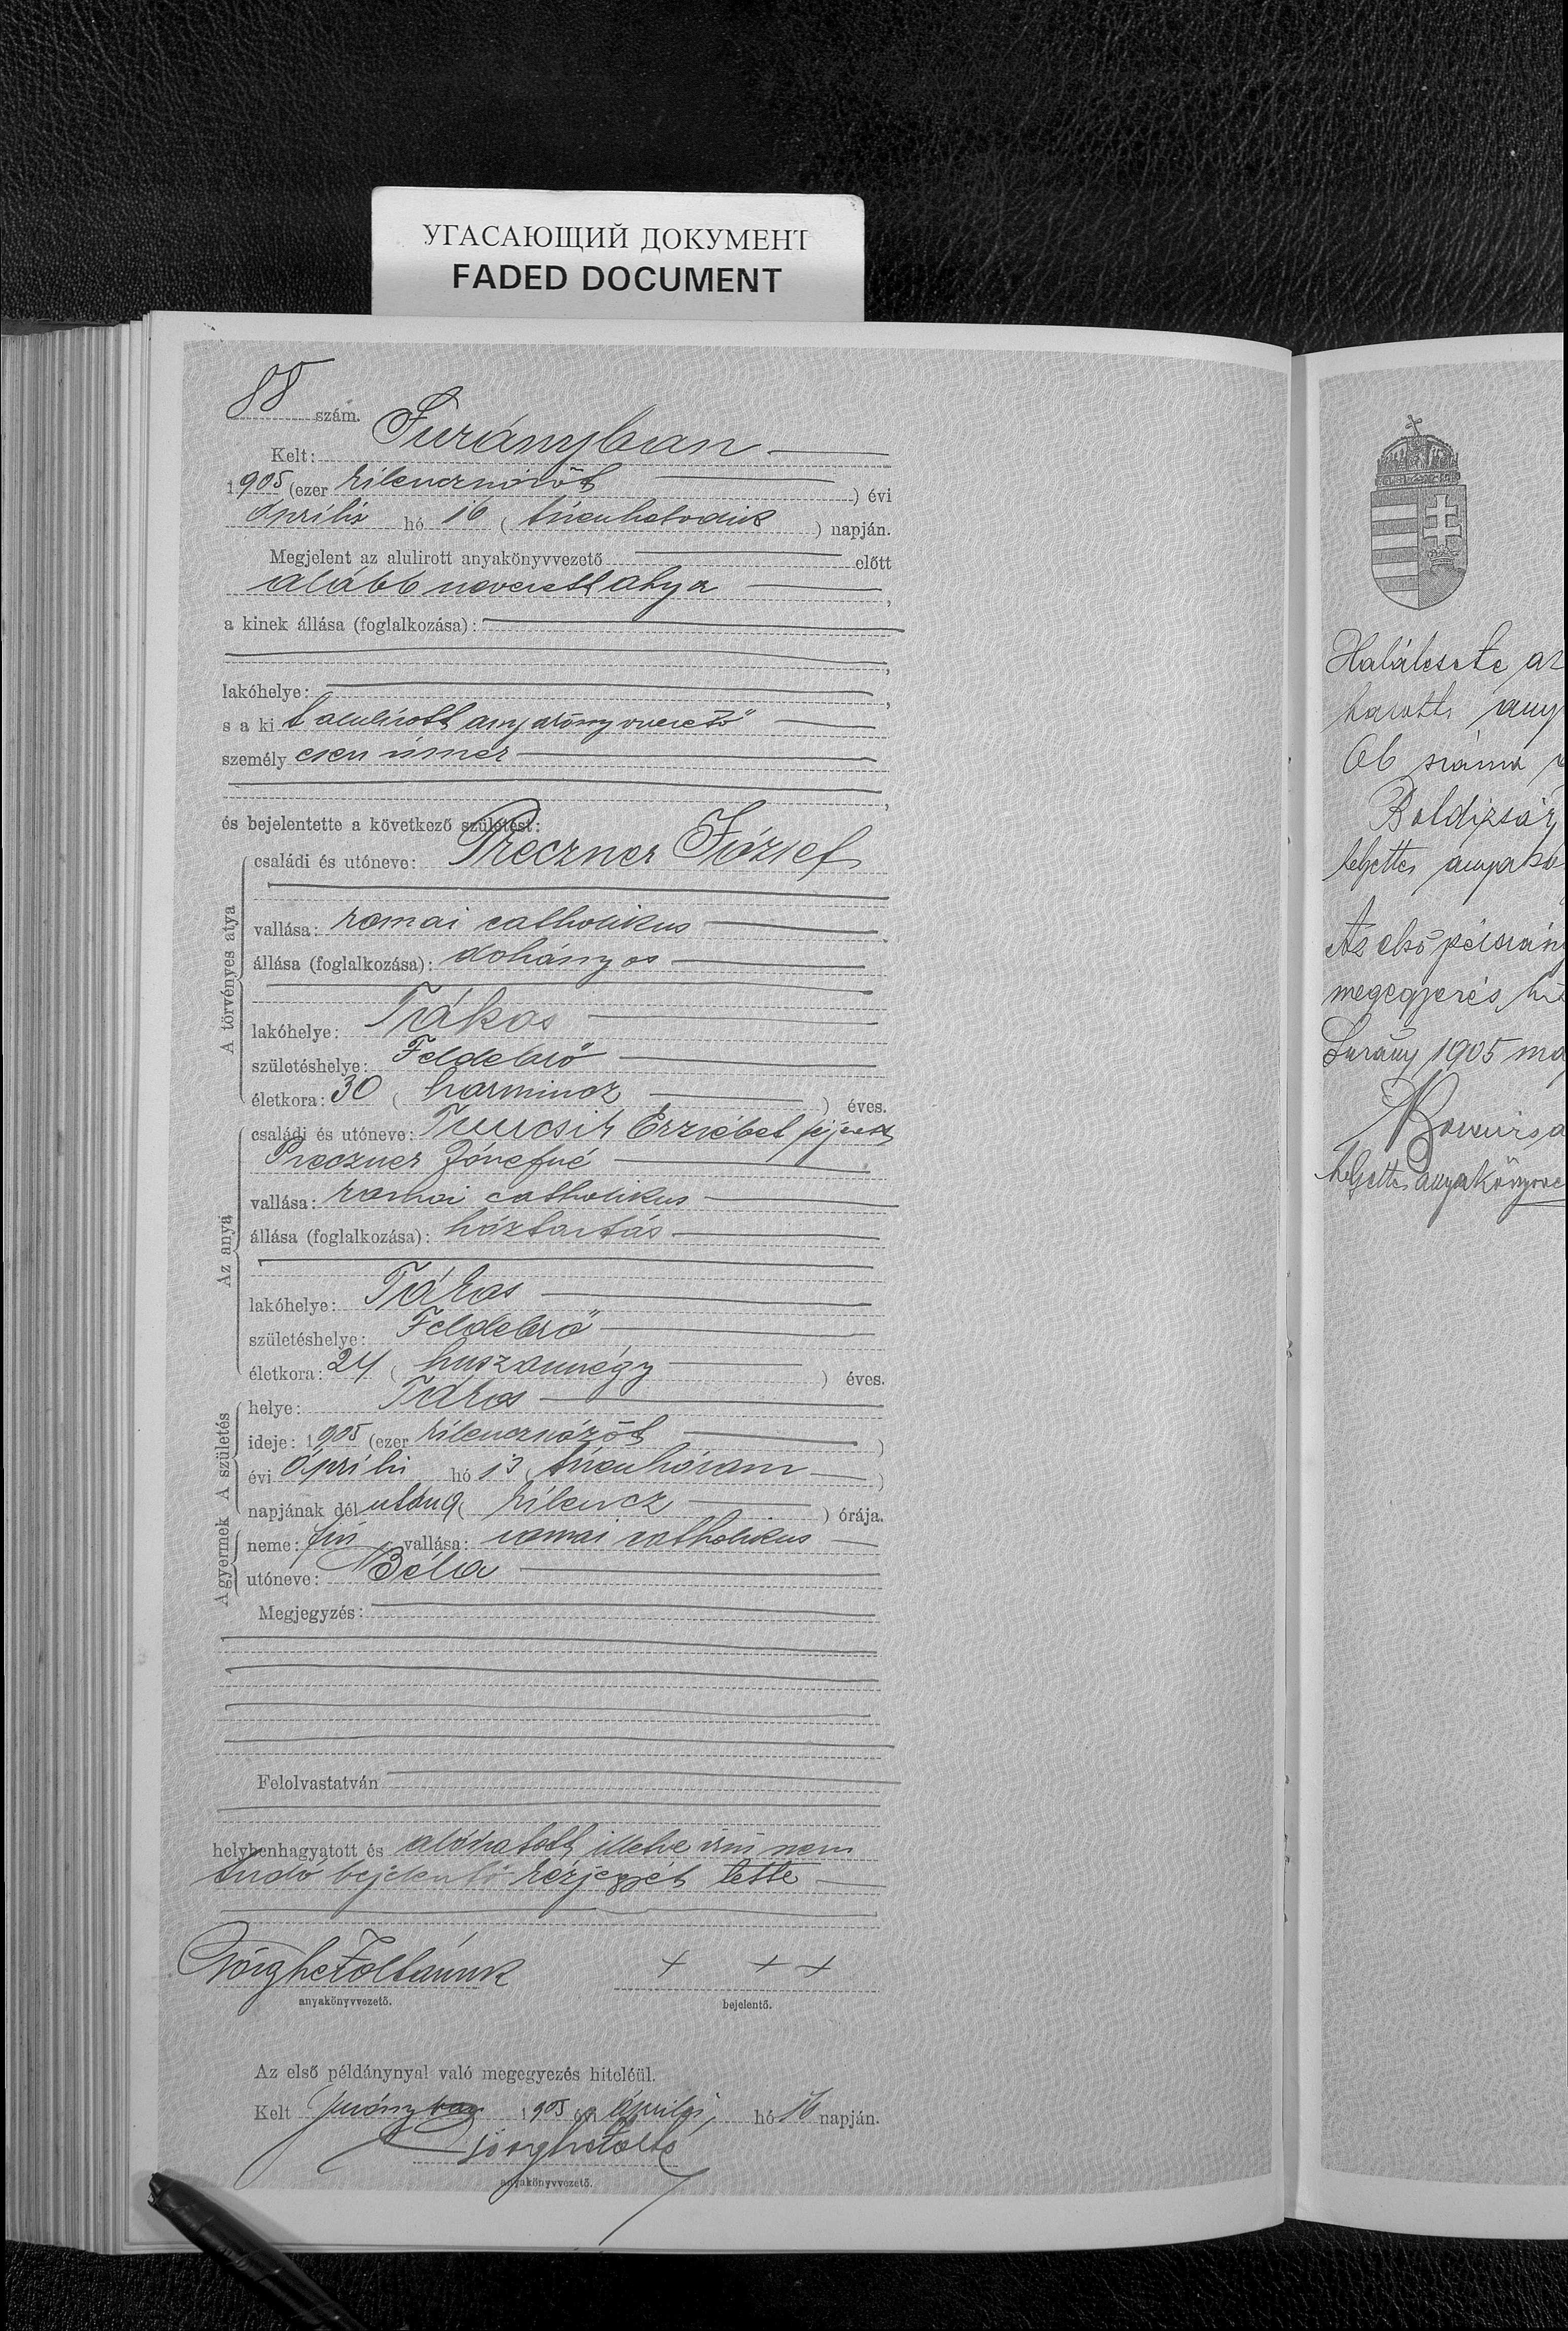 УГАСАЮЩИЙ ДОКУМЕНТ
FADED DOCUMENT
88 szám.
Kelt: Surányban
1905 (ezer kilenczszázöt ) évi
április hó 16 ( tizenhatodik ) napján.
Megjelent az alulirott anyakönyvvezető előtt
alább nevezett atya ,
a kinek állása (foglalkozása):
,
lakóhelye: ,
s a kit alulirott anyakönyvvezető
személyesen ismer
,
és bejelentette a következő születést:
A törvényes atya
családi és utóneve: Preczner József
vallása: romai catholikus
állása (foglalkozása): dohányos
lakóhelye: Tákos
születéshelye: Feldebrő
életkora: 30 ( harmincz ) éves.
Az anya
családi és utóneve: Erzsébet férjezett
Preczner Józsefné
vallása: romai catholikus
állása (foglalkozása): háztartás
lakóhelye: Tákos
születéshelye: Feldebrő
életkora: 24 ( huszonnégy ) éves.
A születés
helye: Tákos
ideje: 1905 (ezer kilenczszázöt )
évi április hó 13 ( tizenhárom )
napjának dél után 9 ( kilencz ) órája.
A gyermek
neme: fiú vallása: romai catholikus
utóneve: Béla
Megjegyzés:
Felolvastatván
helybenhagyatott és aláiratott illetve irni nem
tudó bejelentő kézjegyét tette
+ + +
anyakönyvvezető. bejelentő.
Az első példánynyal való megegyezés hiteléül.
Kelt Surányban 1905 évi április hó 16 napján.
anyakönyvvezető.
Halálesete az
any
szama
Boldizsár
helyettes anyakö
Az első példány
megegyezés hi
Surány 1905 má
helyettes anyakönyvve